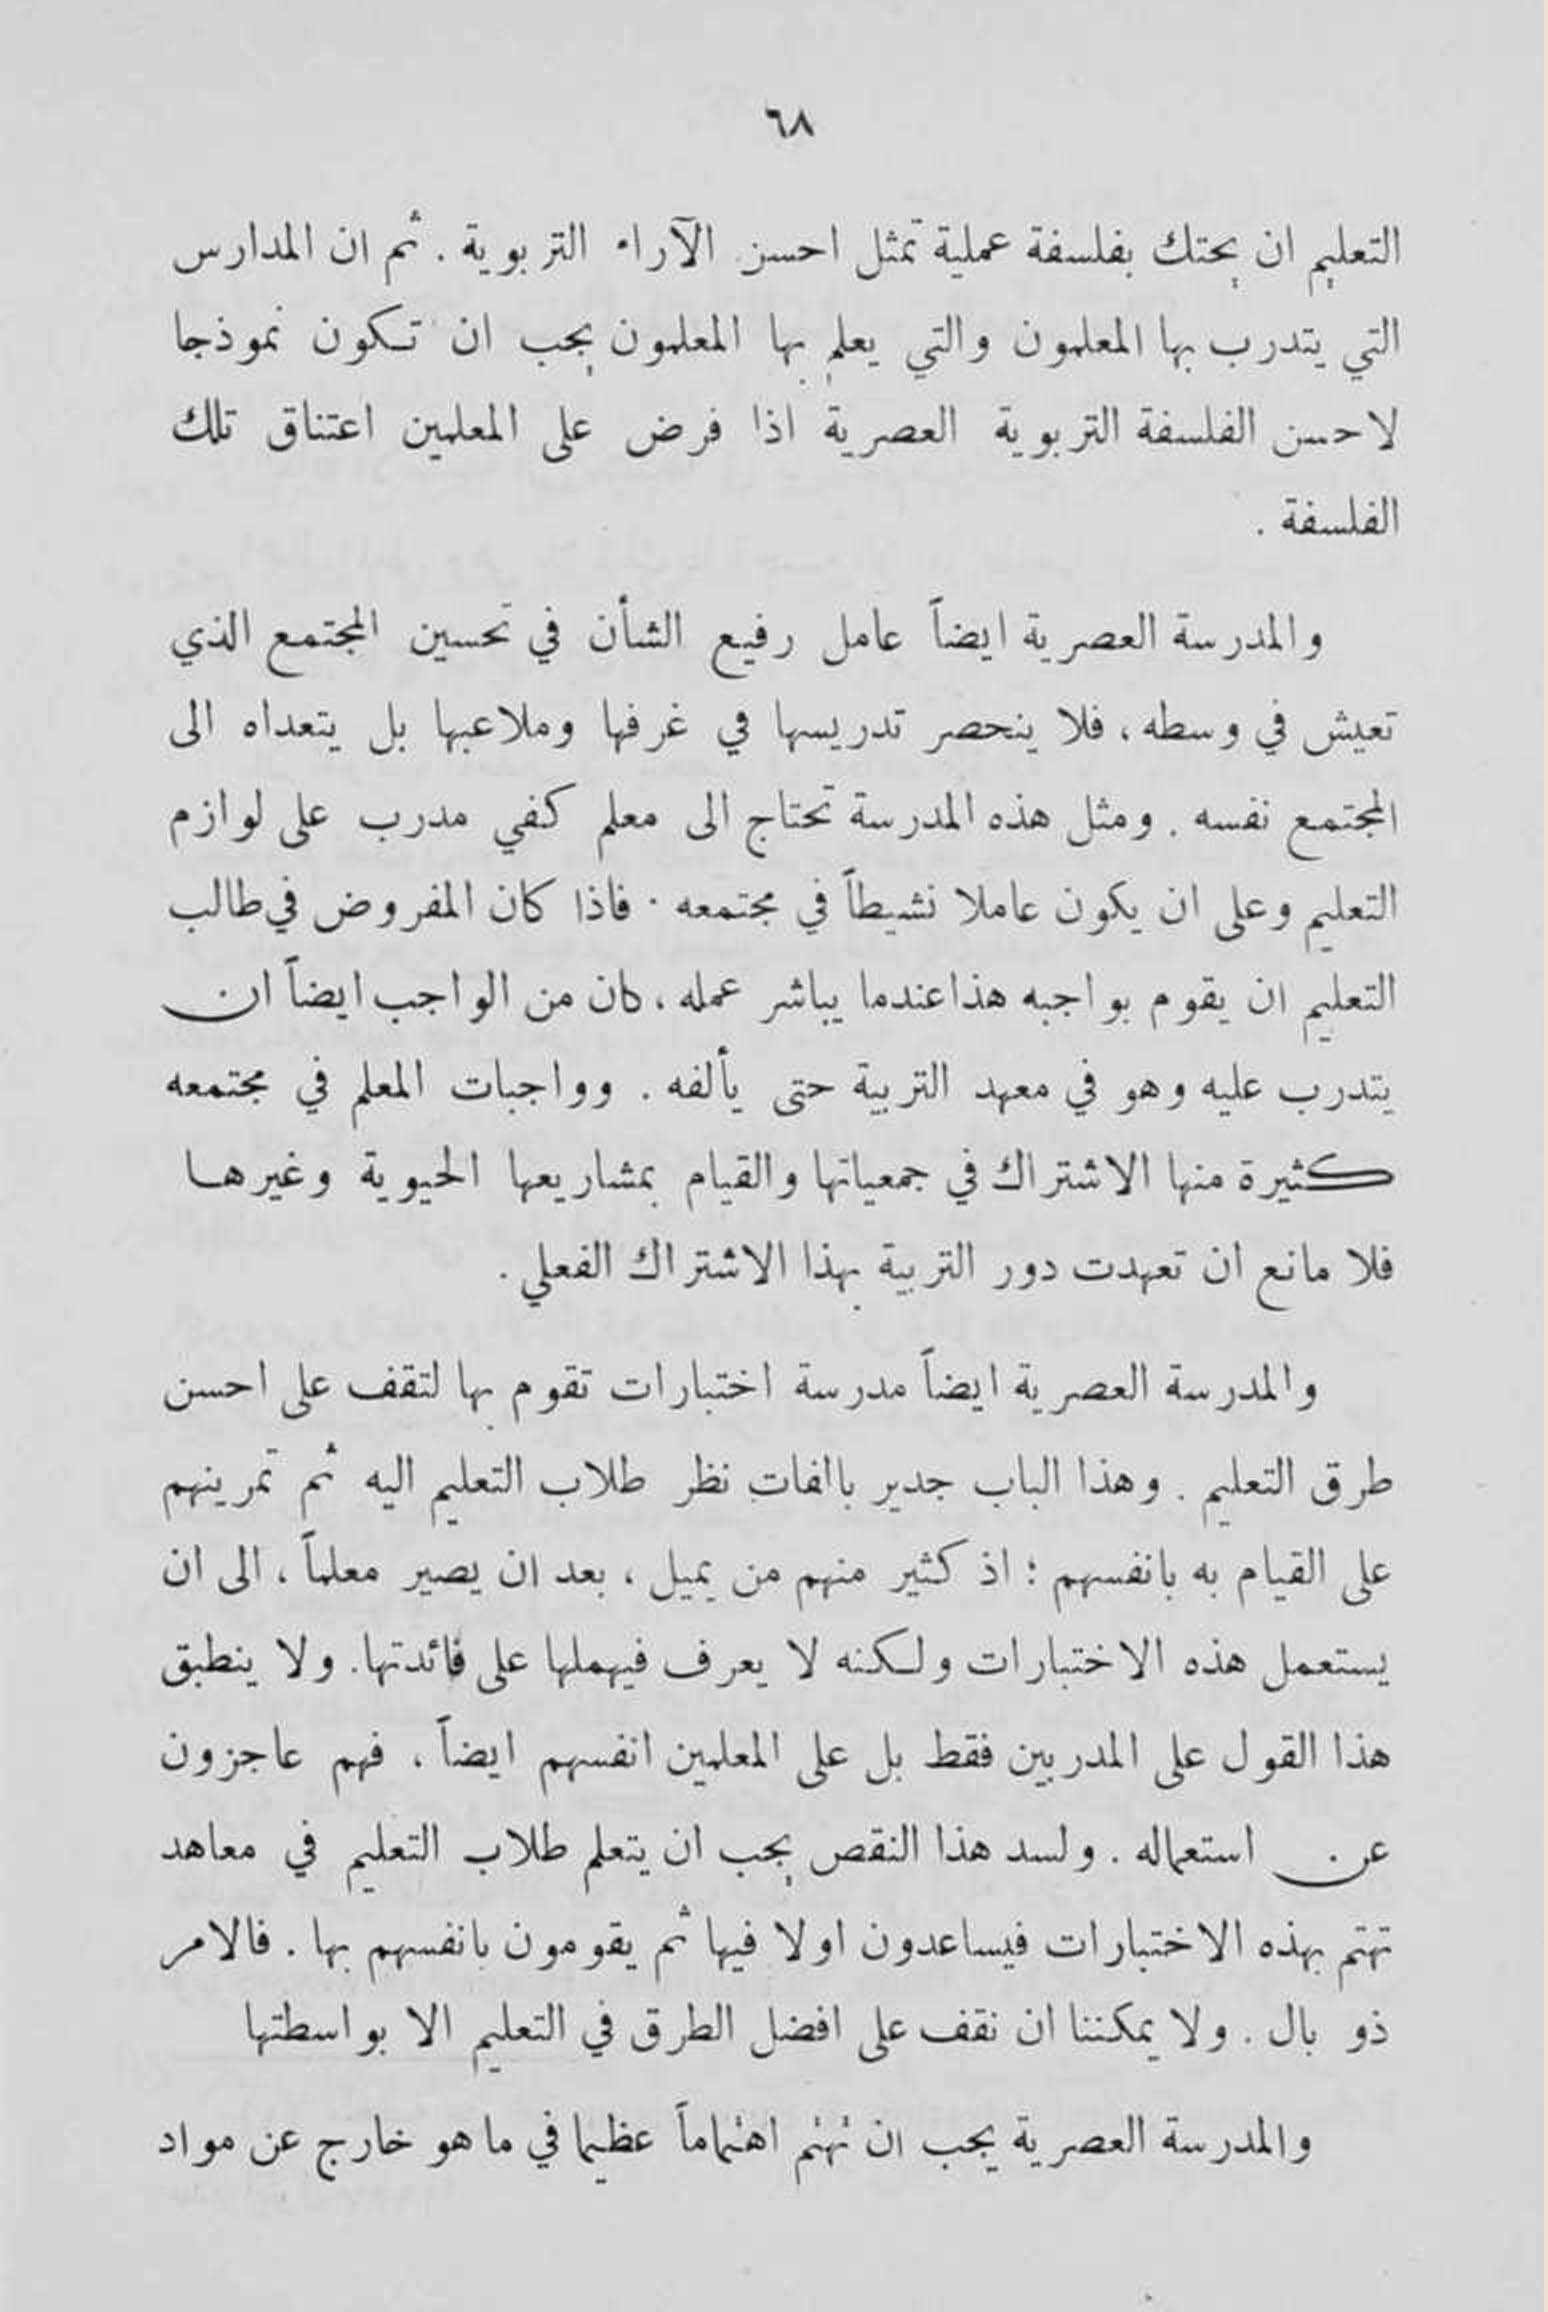 ٦٨
التعليم ان يحتك بفلسفة عملية تمثل احسن الآراء التربوية . ثم ان المدارس
التي يتدرب بها المعلمون والتي يعلم بها المعلمون يجب ان تكون نموذجا
لاحسن الفلسفة التربوية العصرية اذا فرض على المعلمين اعتناق تلك
الفلسفة .
والمدرسة العصرية ايضاً عامل رفيع الشأن في تحسين المجتمع الذي
تعيش في وسطه ، فلا ينحصر تدريسها في غرفها وملاعبها بل يتعداه الى
المجتمع نفسه . ومثل هذه المدرسة تحتاج الى معلم كفي مدرب على لوازم
التعليم وعلى ان يكون عاملا نشيطاً في مجتمعه . فاذا كان المفروض في طالب
التعليم ان يقوم بواجبه هذا عندما يباشر عمله ، كان من الواجب ايضاً ان
يتدرب عليه وهو في معهد التربية حتى يألفه . وواجبات المعلم في مجتمعه
كثيرة منها الاشتراك في جمعياتها والقيام بمشاريعها الحيوية وغيرها
فلا مانع ان تعهدت دور التربية بهذا الاشتراك الفعلي .
والمدرسة العصرية ايضاً مدرسة اختبارات تقوم بها لتقف على احسن
طرق التعليم . وهذا الباب جدير باالفات نظر طلاب التعليم اليه ثم تمرينهم
على القيام به بانفسهم ؛ اذ كثير منهم من يميل ، بعد ان يصير معلماً ، الى ان
يستعمل هذه الاختبارات ولكنه لا يعرف فيهملها على فائدتها. ولا ينطبق
هذا القول على المدربين فقط بل على المعلمين انفسهم ايضاً ، فهم عاجزون
عن استعماله . ولسد هذا النقص يجب ان يتعلم طلاب التعليم في معاهد
تهتم بهذه الاختبارات فيساعدون اولا فيها ثم يقومون بانفسهم بها . فالامر
ذو بال . ولا يمكننا ان نقف على افضل الطرق في التعليم الا بواسطتها
والمدرسة العصرية يجب ان تهتم اهتماماً عظيما في ما هو خارج عن مواد